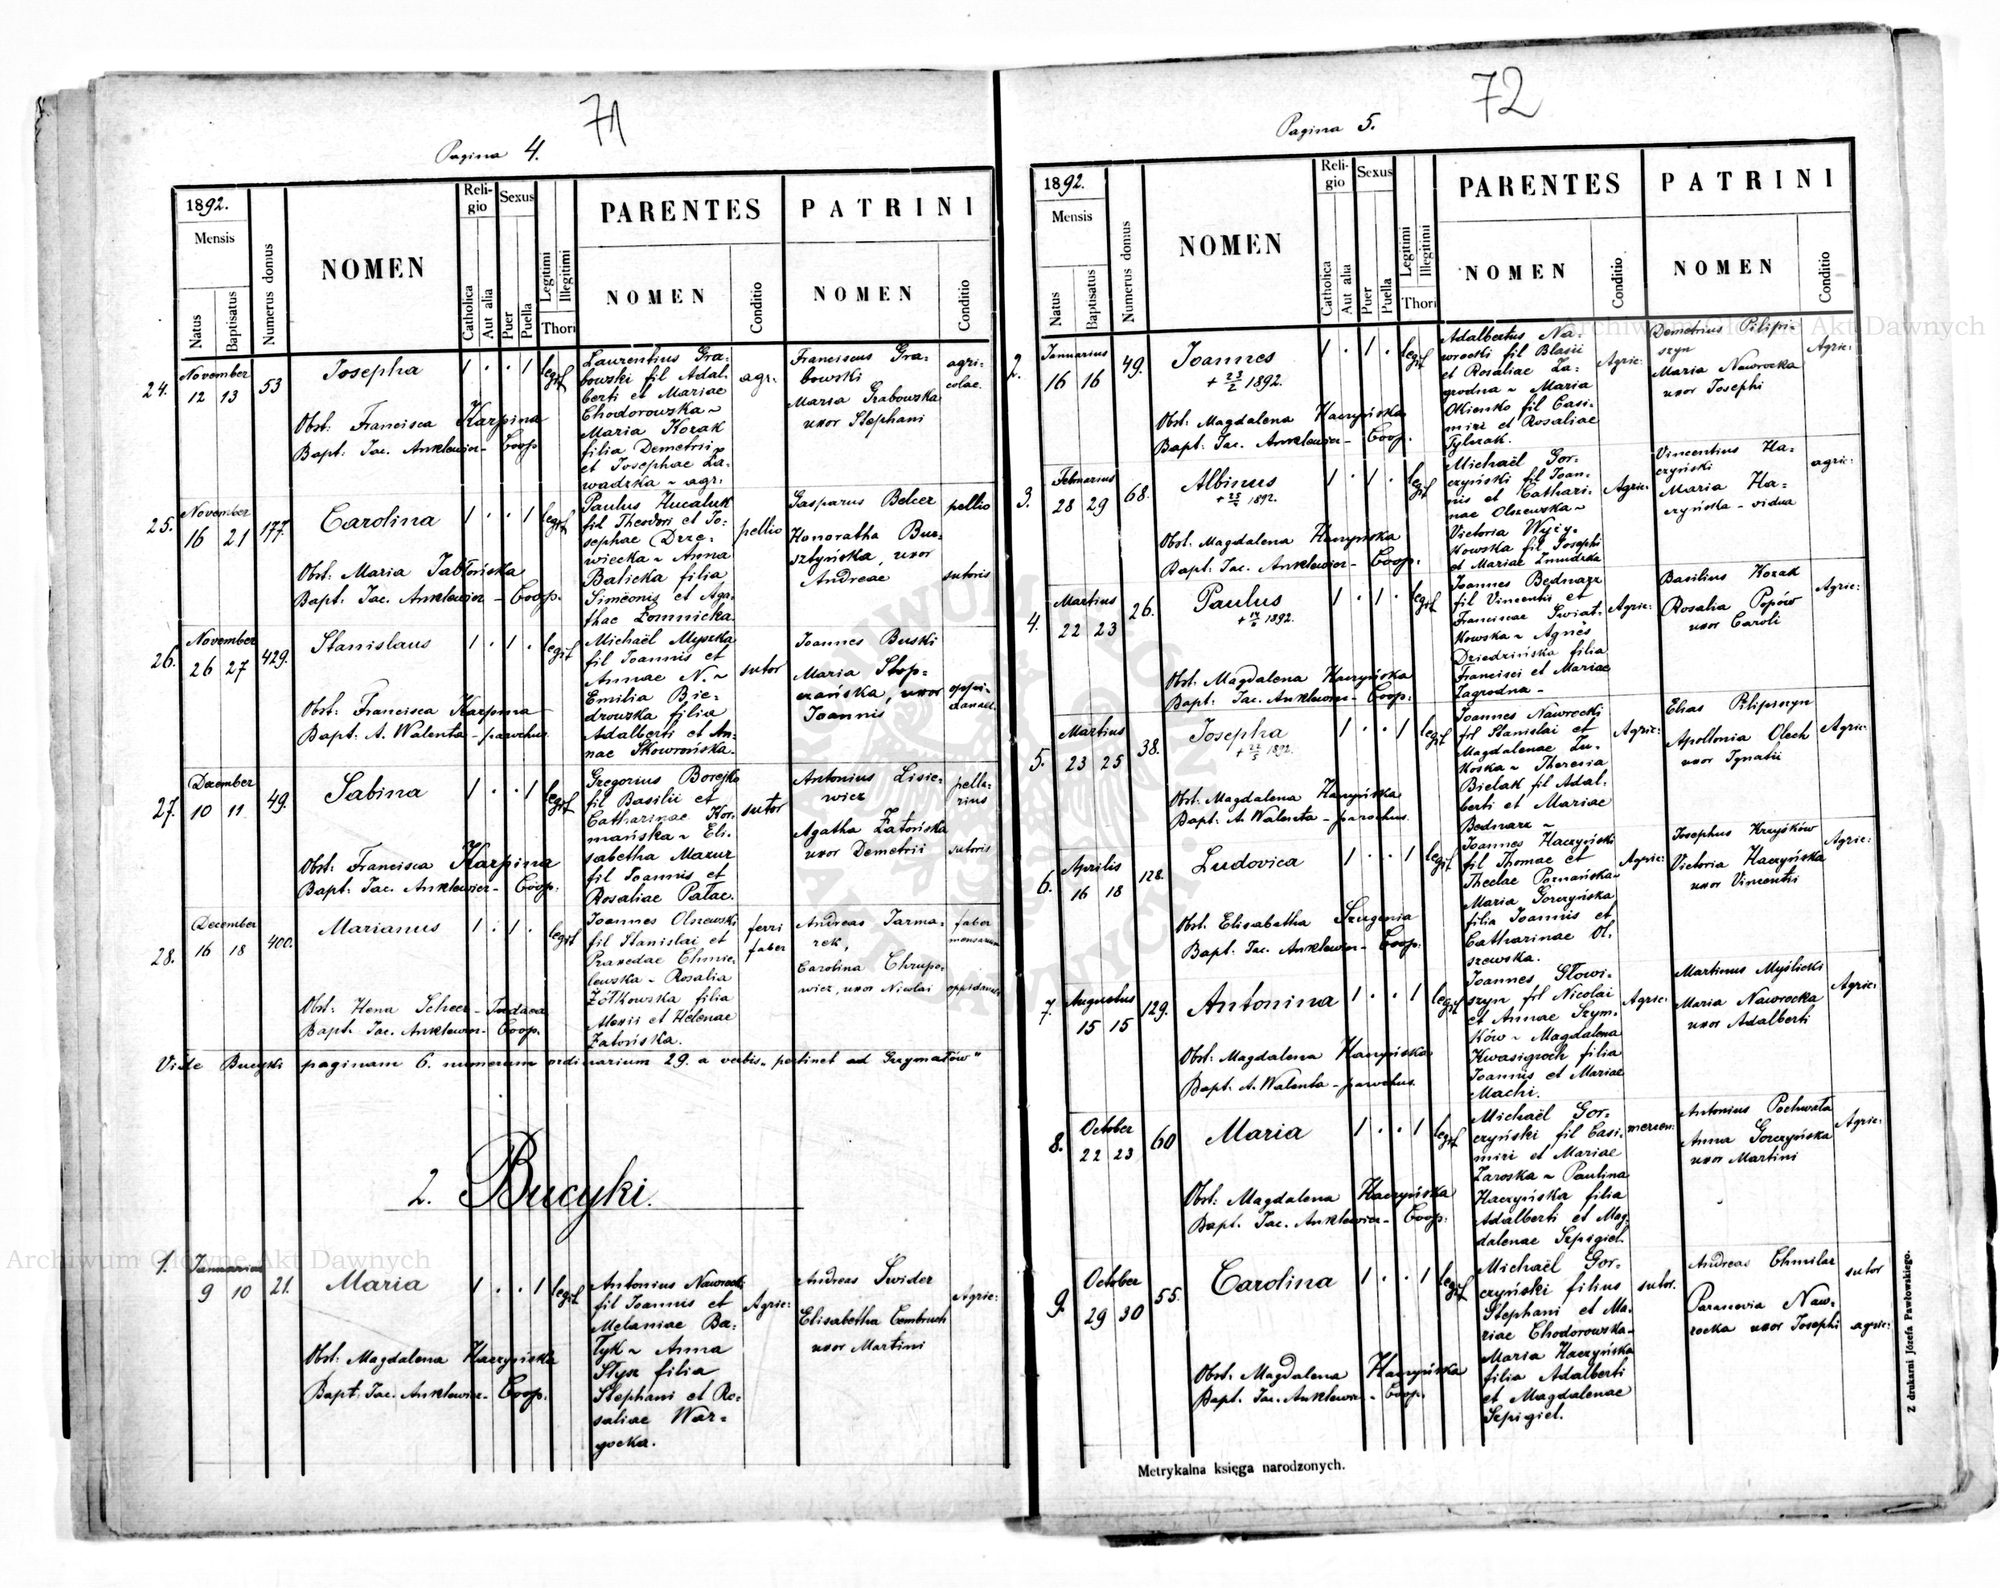 71
Pagina 4.
1892.
Mensis
Natus
Baptisatus
Numerus domus
NOMEN
Reli-
gio
Catholica
Aut alia
Sexus
Puer
Puella
Legitimi
Illegitimi
Thori
PARENTES
NOMEN
Conditio
PATRINI
NOMEN
Conditio
24.
November
12 13
53
Josepha
1 . . 1
legit
Obst: Francisca Karpina
Bapt: Jac. Anklewicz - Coop
Laurentius Gra-
bowski fil Adal-
berti et Mariae
Chodorowska ~
Maria Kozak
filia Demetrii
et Josephae Za-
wadzka ~ agr:
agr:
Franciscus Gra-
bowski
Maria Grabowska
uxor Stephani
agri-
colae.
25.
November
16 21
177.
Carolina
1 . . 1
legit
Obst: Maria Jabłońska
Bapt: Jac. Anklewicz - Coop.
Paulus Hucaluk
fil Theodori et Jo-
sephae Drze-
wiecka ~ Anna
Balicka filia
Simeonis et Aga-
thae Łomnicka
pellio
Gasparus Belcer
Honoratha Bur-
sztyńska, uxor
Andreae
pellio
sutoris
26.
November
26 27
429.
Stanislaus
1 . 1 .
legit
Obst: Francisca Karpina
Bapt: A. Walenta - parochus.
Michaël Myszka
fil Joannis et
Annae N. ~
Emilia Bie-
drowska filia
Adalberti et An-
nae Skowrońska.
sutor
Joannes Buski
Maria Stop-
czańska, uxor
Joannis
oppi-
danaes.
27.
December
10 11
49.
Sabina
1 . . 1
legit
Obst: Francisca Karpina
Bapt: Jac. Anklewicz - Coop:
Gregorius Borejko
fil Basilii et
Catharinae Kor-
mańska ~ Eli-
sabetha Mazur
fil Joannis et
Rosaliae Pałac.
sutor
Antonius Lisie-
wicz
Agatha Zatońska
uxor Demetrii
pella-
rius
sutoris
28.
December
16 18
400.
Marianus
1 . 1 .
legit
Obst: Hena Scheer - Judaea
Bapt: Jac. Anklewicz - Coop.
Joannes Olszewski
fil Stanislai et
Praxedae Chmie-
lewska ~ Rosalia
Żółkowska filia
Alexii et Helenae
Zatońska.
ferri
faber
Andreas Jarma-
rek,
Carolina Chrupo-
wicz, uxor Nicolai
faber
mensarum
Vide Bucyki paginam 6. numerum ordinarium 29. a verbis „pertinet ad Grzymałów"
2. Bucyki.
1.
Januarius
9 10
21.
Maria
1 . . 1
legit
Obst: Magdalena Haczyńska
Bapt: Jac. Anklewicz - Coop.
Antonius Nawrocki
fil Joannis et
Melaniae Ba-
łyk ~ Anna
Słysz filia
Stephani et Ro-
saliae War-
gocka.
Agric:
Andreas Świder
Elisabetha Cembruch
uxor Martini
Agric:
72
Pagina 5.
1892.
Mensis
Natus
Baptisatus
Numerus domus
NOMEN
Reli-
gio
Catholica
Aut alia
Sexus
Puer
Puella
Legitimi
Illegitimi
Thori
PARENTES
NOMEN
Conditio
PATRINI
NOMEN
Conditio
2.
Januarius
16 16
49.
Joannes
+ 23/2 1892.
1 . 1 .
legit
Obst: Magdalena Haczyńska
Bapt: Jac. Anklewicz - Coop.
Adalbertus Na-
wrocki fil Blasii
et Rosaliae Za-
grodna ~ Maria
Okienko fil Casi-
miri et Rosaliae
Tylczak.
Agric:
Demetrius Pilipi-
szyn
Maria Nawrocka
uxor Josephi
Agric:
3.
Februarius
28 29
68.
Albinus
1892.
1 . 1 .
legit
Obst: Magdalena Haczyńska
Bapt: Jac. Anklewicz - Coop:
Michaël Gor-
czyński fil Joan-
nis et Cathari-
nae Olszewska ~
Victoria Wyży-
kowska fil Josephi
et Mariae Żmudzka
Agric:
Vincentius Ha-
czyński
Maria Ha-
czyńska - vidua
agric:
4.
Martius
22 23
26.
Paulus
1892.
1 . 1 .
legit
Obst: Magdalena Haczyńska
Bapt: Jac. Anklewicz - Coop:
Joannes Bednarz
fil Vincentii et
Franciscae Świat-
kowska ~ Agnes
Dziedzińska filia
Francisci et Mariae
Zagrodna -
Agric:
Basilius Kozak
Rosalia Popów
uxor Caroli
Agric:
5.
Martius
23 25
38.
Josepha
1892.
1 . . 1
legit
Obst: Magdalena Haczyńska
Bapt: A. Walenta - parochus.
Joannes Nawrocki
fil Stanislai et
Magdalenae Żu-
koska ~ Theresia
Bielak fil Adal-
berti et Mariae
Bednarz ~
Agric:
Elias Pilipiszyn
Apollonia Olech
uxor Ignatii
Agric:
6.
Aprilis
16 18
128.
Ludovica
1 . . 1
legit
Obst: Elisabetha Szugenia
Bapt: Jac. Anklewicz - Coop:
Joannes Haczyński
fil Thomae et
Theclae Poznańska ~
Maria Gorczyńska
filia Joannis et
Catharinae Ol-
szewska.
Agric:
Josephus Krzyśków
Victoria Haczyńska
uxor Vincentii
Agric:
7.
Augustus
15 15
129.
Antonina
1 . . 1
legit
Obst: Magdalena Haczyńska
Bapt: A. Walenta - parochus.
Joannes Głowi-
szyn fil Nicolai
et Annae Szym-
ków ~ Magdalena
Kwasigroch filia
Joannis et Mariae
Machi.
Agric:
Martinus Myślicki
Maria Nawrocka
uxor Adalberti
Agric:
8.
October
22 23
60
Maria
1 . . 1
legit
Obst: Magdalena Haczyńska
Bapt. Jac. Anklewicz - Coop:
Michaël Gor-
czyński fil Casi-
miri et Mariae
Zaroska ~ Paulina
Haczyńska filia
Adalberti et Mag-
dalenae Szpigiel.
mercen:
Antonius Pochwała
Anna Gorczyńska
uxor Martini
Agric:
9.
October
29 30
55.
Carolina
1 . . 1
legit
Obst: Magdalena Haczyńska
Bapt. Jac. Anklewicz - Coop.
Michaël Gor-
czyński filius
Stephani et Ma-
riae Chodorowska -
Maria Haczyńska
filia Adalberti
et Magdalenae
Szpigiel.
sutor.
Andreas Chmilar
Paranevia Naw-
rocka uxor Josephi
sutor
agric:
Metrykalna księga narodzonych.
Z drukarni Józefa Pawłowskiego.
Archiwum Główne Akt Dawnych
Archiwum Główne Akt Dawnych